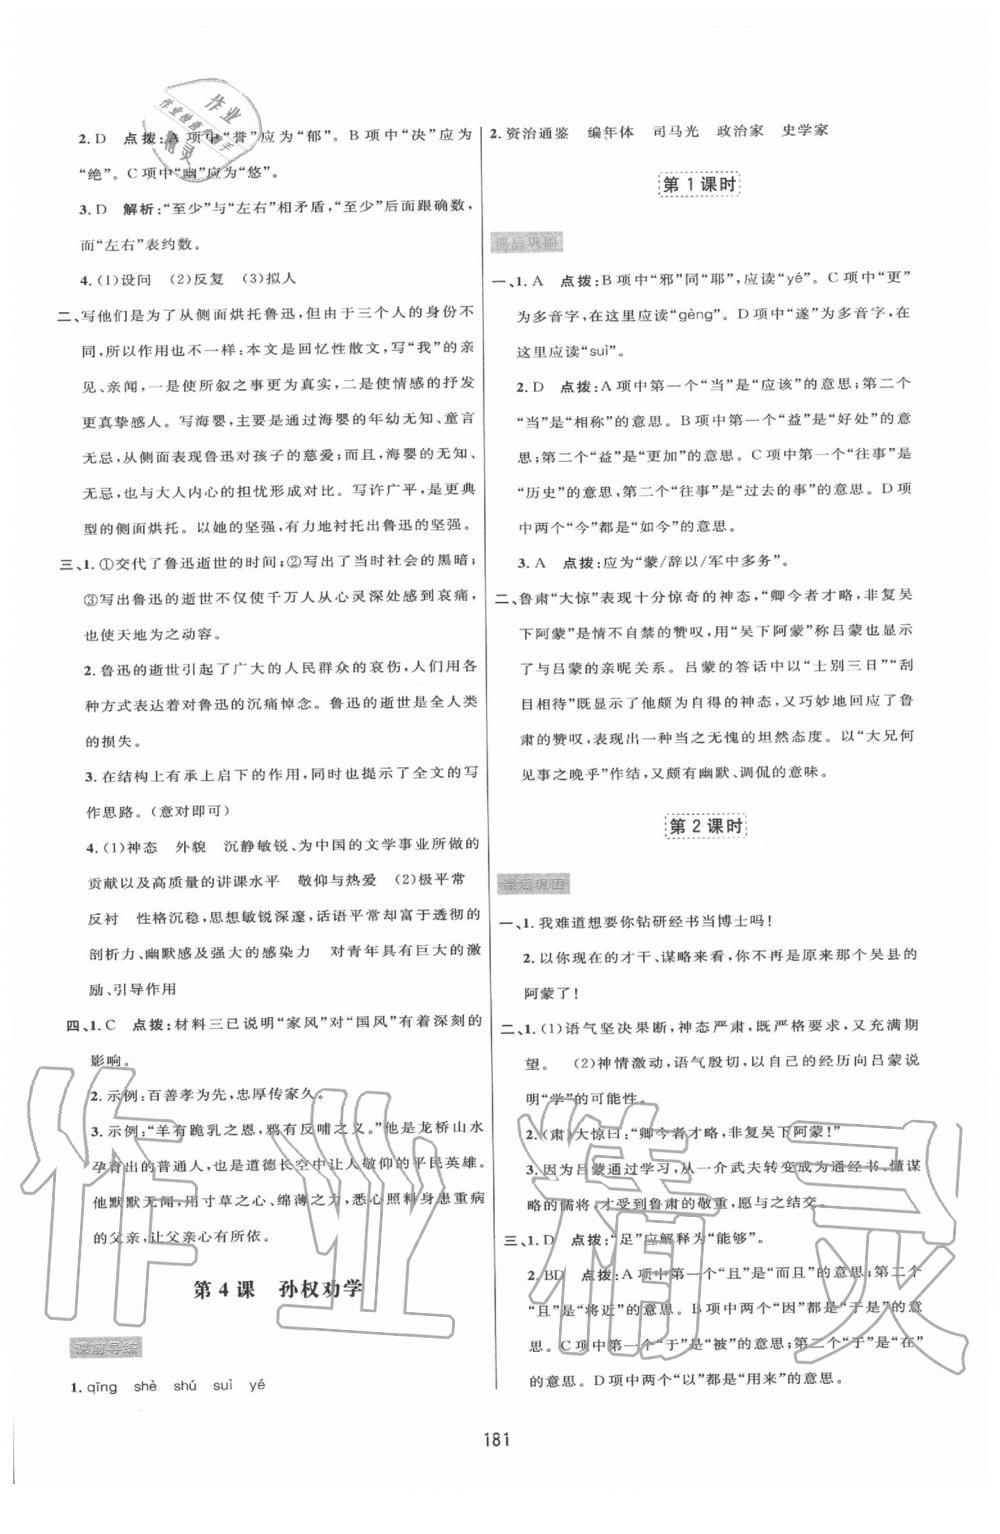 2. D　点拨:A 项中“誉”应为“郁”。B 项中“决”应为
“绝”。C 项中“幽”应为“悠”。
3. D　解析:“至少”与“左右”相矛盾,“至少”后面跟确数,
而“左右”表约数。
4. (1)设问　(2)反复　(3)拟人
二、写他们是为了从侧面烘托鲁迅,但由于三个人的身份不
同,所以作用也不一样:本文是回忆性散文,写“我”的亲
见、亲闻,一是使所叙之事更为真实,二是使情感的抒发
更真挚感人。写海婴,主要是通过海婴的年幼无知、童言
无忌,从侧面表现鲁迅对孩子的慈爱;而且,海婴的无知、
无忌,也与大人内心的担忧形成对比。写许广平,是更典
型的侧面烘托。以她的坚强,有力地衬托出鲁迅的坚强。
三、1. ①交代了鲁迅逝世的时间;②写出了当时社会的黑暗;
③写出鲁迅的逝世不仅使千万人从心灵深处感到哀痛,
也使天地为之动容。
2. 鲁迅的逝世引起了广大的人民群众的哀伤,人们用各
种方式表达着对鲁迅的沉痛悼念。鲁迅的逝世是全人类
的损失。
3. 在结构上有承上启下的作用,同时也提示了全文的写
作思路。(意对即可)
4. (1)神态　外貌　沉静敏锐、为中国的文学事业所做的
贡献以及高质量的讲课水平　敬仰与热爱　(2)极平常
反衬　性格沉稳,思想敏锐深邃,话语平常却富于透彻的
剖析力、幽默感及强大的感染力　对青年具有巨大的激
励、引导作用
四、1. C　点拨:材料三已说明“家风”对“国风”有着深刻的
影响。
2. 示例:百善孝为先,忠厚传家久。
3. 示例:“羊有跪乳之恩,鸦有反哺之义。”他是龙桥山水
孕育出的普通人,也是道德长空中让人敬仰的平民英雄。
他默默无闻,用寸草之心、绵薄之力,悉心照料身患重病
的父亲,让父亲心有所依。
第 4 课　孙权劝学
课前导练
1. qīng　shè　shú　suì　yé
2. 资治通鉴　编年体　司马光　政治家　史学家
第 1 课时
课后巩固
一、1. A　点拨:B 项中“邪”同“耶”,应读“yé”。C 项中“更”
为多音字,在这里应读“gèng”。D 项中“遂”为多音字,在
这里应读“suì”。
2. D　点拨:A 项中第一个“当”是“应该”的意思;第二个
“当”是“相称”的意思。B 项中第一个“益”是“好处”的意
思;第二个“益”是“更加”的意思。C 项中第一个“往事”是
“历史”的意思,第二个“往事”是“过去的事”的意思。D 项
中两个“今”都是“如今”的意思。
3. A　点拨:应为“蒙/辞以/军中多务”。
二、鲁肃“大惊”表现十分惊奇的神态,“卿今者才略,非复吴
下阿蒙”是情不自禁的赞叹,用“吴下阿蒙”称吕蒙也显示
了与吕蒙的亲昵关系。吕蒙的答话中以“士别三日”“刮
目相待”既显现了他颇为自得的神态,又巧妙地回应了鲁
肃的赞叹,表现出一种当之无愧的坦然态度。以“大兄何
见事之晚乎”作结,又颇有幽默、调侃的意味。
第 2 课时
课后巩固
一、1. 我难道想要你钻研经书当博士吗!
2. 以你现在的才干、谋略来看,你不再是原来那个吴县的
阿蒙了!
二、1. (1)语气坚决果断,神态严肃,既严格要求,又充满期
望。　(2)神情激动,语气殷切,以自己的经历向吕蒙说
明“学”的可能性。
2. (肃)大惊曰:“卿今者才略,非复吴下阿蒙!”
3. 因为吕蒙通过学习,从一介武夫转变成为通经书、懂谋
略的儒将,才受到鲁肃的敬重,愿与之结交。
三、1. D　点拨:“足”应解释为“能够”。
2. BD　点拨:A 项中第一个“且”是“而且”的意思;第二个
“且”是“将近”的意思。B 项中两个“因”都是“于是”的意
思。C 项中第一个“于”是“被”的意思;第二个“于”是“在”
的意思。D 项中两个“以”都是“用来”的意思。
181
作业精灵
作业
精灵